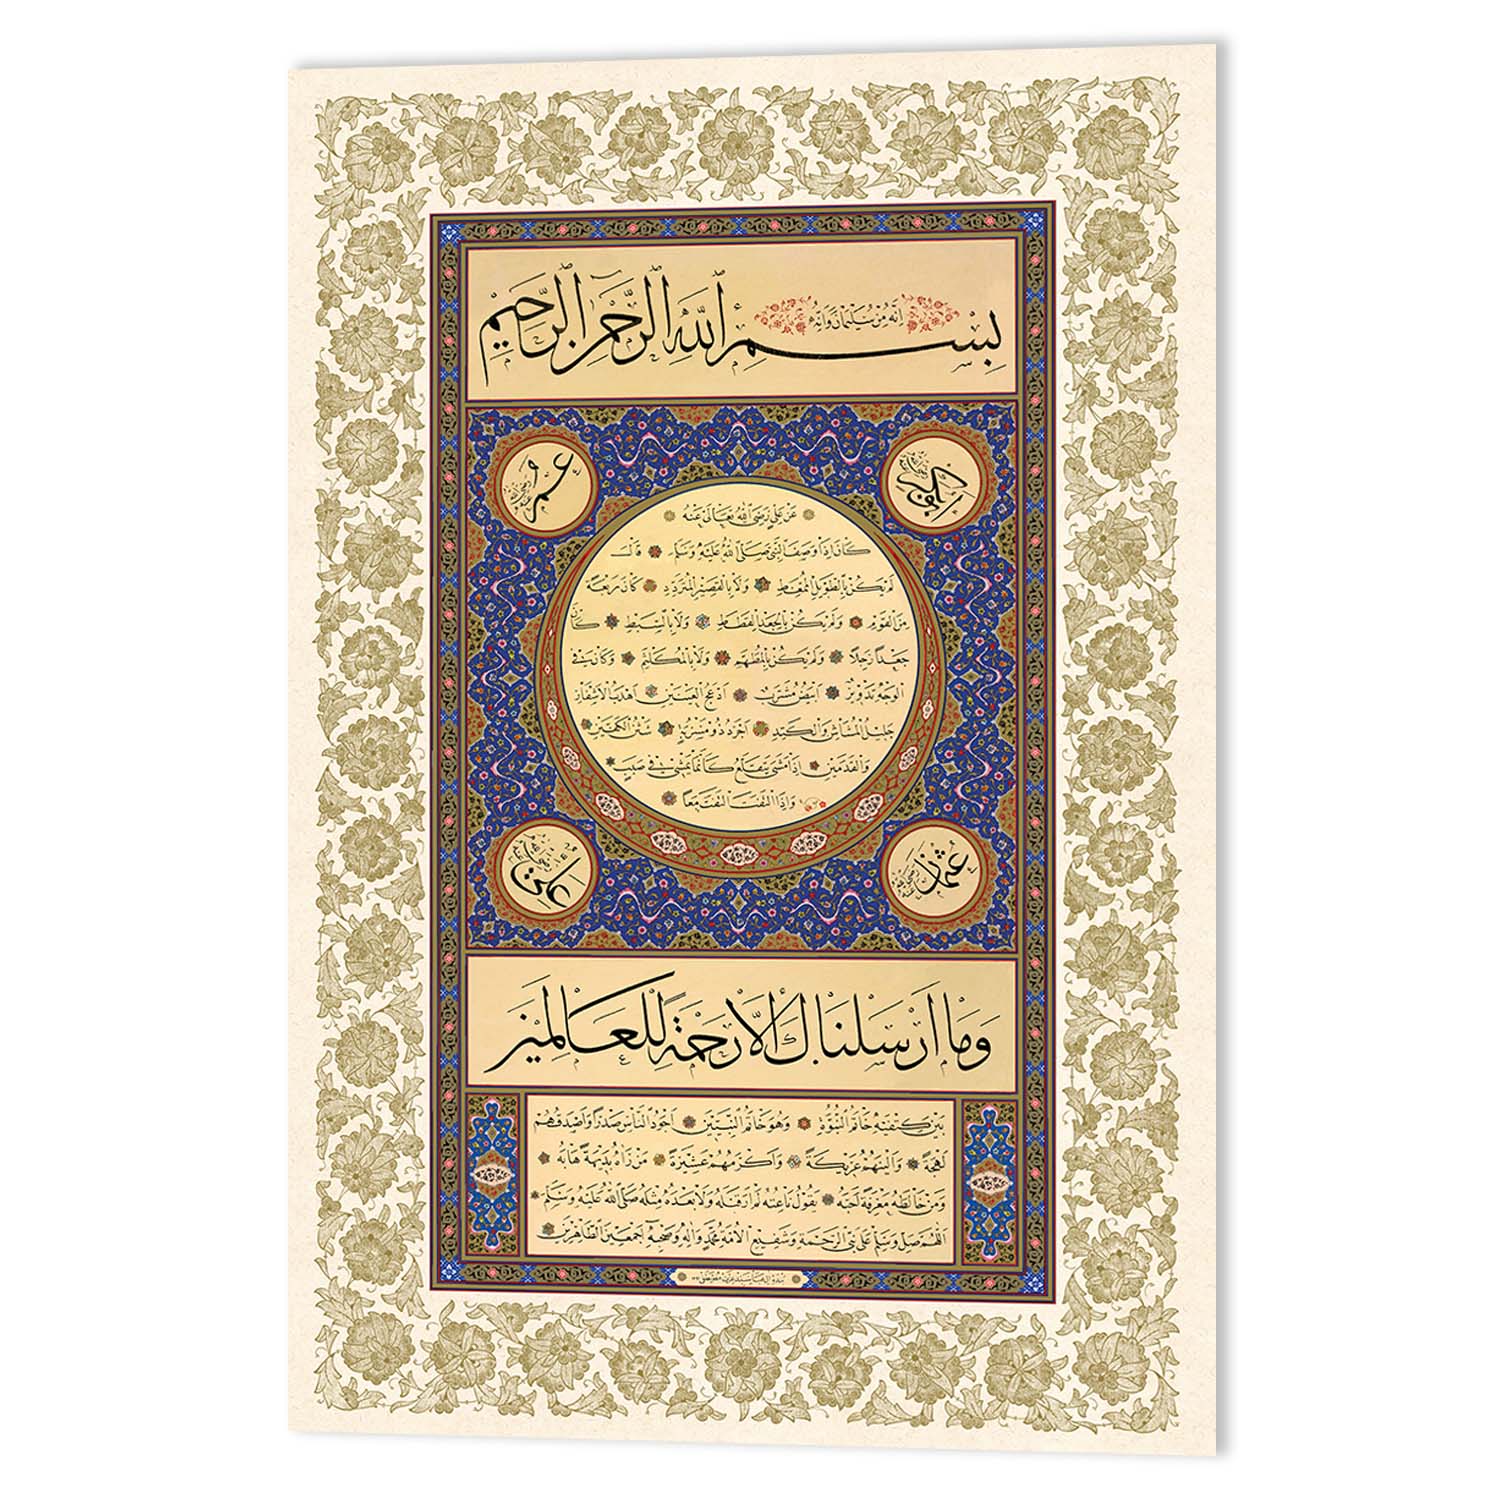 إنه من سليمان وإنه
بسم الله الرحمن الرحيم
أبو بكر رضي الله عنه
عمر رضي الله عنه
عن علي رضي الله تعالى عنه
كان إذا وصف النبي صلى الله عليه وسلم قال
لم يكن بالطويل الممغط ولا بالقصير المتردد كان ربعة
من القوم ولم يكن بالجعد القطط ولا بالسبط كان
جعدا رجلا ولم يكن بالمطهم ولا بالمكلثم وكان في
الوجه تدوير أبيض مشرب أدعج العينين أهدب الأشفار
جليل المشاش والكتد أجرد ذو مسربة شثن الكفين
والقدمين إذا مشى يتقلع كأنما يمشي في صبب
وإذا التفت التفت معا
عثمان رضي الله عنه
علي رضي الله عنه
وما أرسلناك إلا رحمة للعالمين
بين كتفيه خاتم النبوة وهو خاتم النبيين أجود الناس صدرا وأصدقهم
لهجة وألينهم عريكة وأكرمهم عشيرة من رآه بديهة هابه
ومن خالطه معرفة أحبه يقول ناعته لم أر قبله ولا بعده مثله صلى الله عليه وسلم
اللهم صل وسلم على نبي الرحمة وشفيع الأمة محمد وآله وصحبه أجمعين الطاهرين